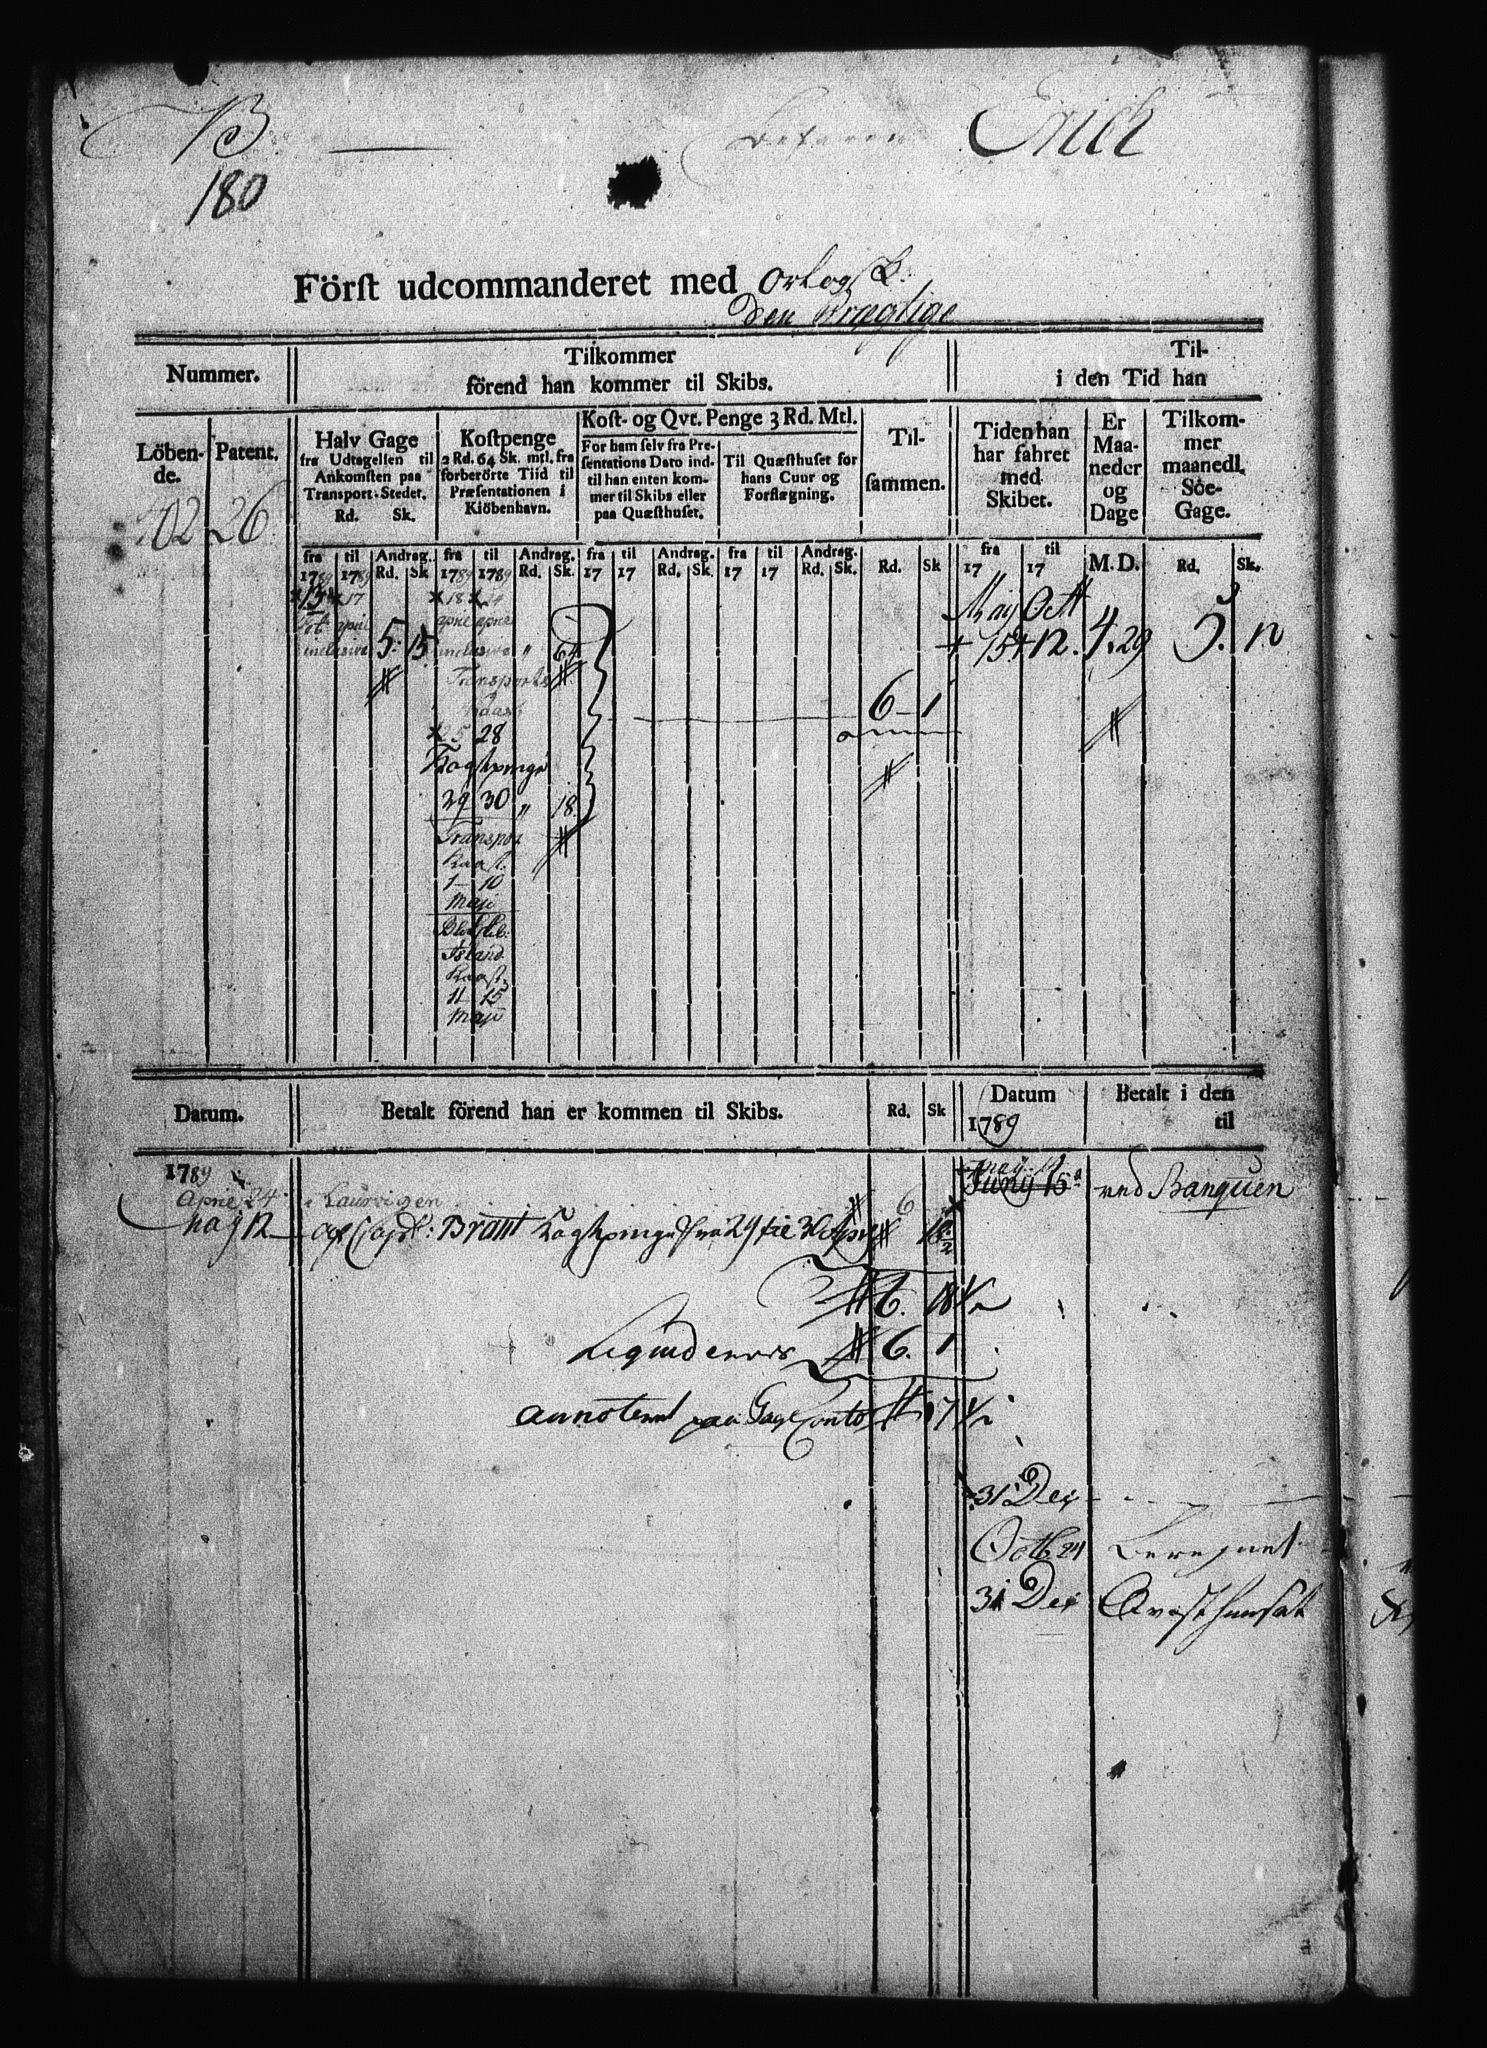 B
Befaren Erich
180
Förſt udcommanderet med Orlogsk:
Den Prægtige
Nummer.
Tilkommer
förend han kommer til Skibs.
Til-
i den Tid han
Löben-
de.
Patent.
Halv Gage
fra Udtagelſen til
Ankomſten paa
Transport-Stedet.
Rd. Sk.
Koſtpenge
2 Rd. 64 Sk. mtl. fra
forberörte Tiid til
Præſentationen i
Kiöbenhavn.
Koſt- og Qvt. Penge 3 Rd. Mtl.
For ham ſelv fra Pre-
ſentations Dato ind-
til han enten kom-
mer til Skibs eller
paa Quæſthuſet.
Til Quæſthuſet for
hans Cuur og
Forflægning.
Til-
ſammen.
Tiden han
har fahret
med
Skibet.
Er
Maa-
neder
og
Dage
Tilkom-
mer
maanedl.
Söe-
Gage.
02 26
fra til Andrag. fra til Andrag. fra til Andrag. fra til Andrag. fra til
1789 1789 Rd. Sk 1789 1789 Rd. Sk. 17 17 Rd. Sk. 17 17 Rd. Sk. Rd. Sk 17 17 M. D. Rd. Sk.
13 17 18 24 May Oct
inclusive 5. 15 inclusive " 64 15 12. 4. 29 5. 12
Transports
Kaast
6 1
25 28
Kostpenge
29 30 " 18
Transpor
Kaast.
1 10
Maji
Island
Kaast
11 15
Maji
Datum.
Betalt förend han er kommen til Skibs.
Rd. Sk
Datum
1789
Betalt i den
til
1789
April 24 Laurvigen 6
Juny 15 ved Banquen
May 12 af Capt: Brant Kostpenge fra 29 til 30 Apr 18 1/2
6. 18 1/2
Liquideres 6. 1
annoteret paa Gage Conto 17 1/2
31 Dec
Octb 24 Beregnet
31 Dec